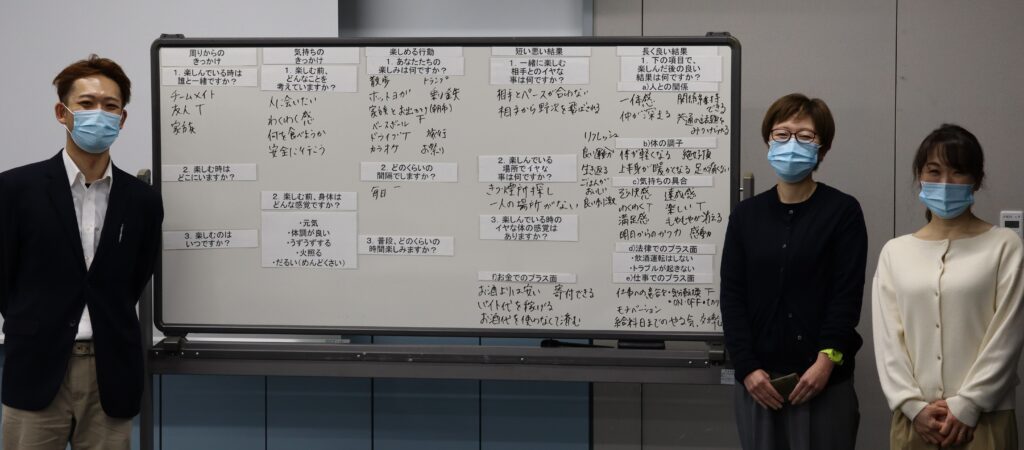 周りからの
きっかけ
1. 楽しんでいる時は
誰と一緒ですか？
チームメイト
友人 T
家族
2. 楽しむ時は
どこにいますか？
3. 楽しむのは
いつですか？
気持ちの
きっかけ
1. 楽しむ前、
どんなことを
考えていますか？
人に会いたい
わくわく感
何を食べようか
安全に行こう
2. 楽しむ前、身体は
どんな感覚ですか？
・元気
・体調が良い
・うずうずする
・火照る
・だるい(めんどくさい)
楽しめる行動
1. あなたたちの
楽しみは何ですか？
散歩 トランプ
ホットヨガ
家族とお出かけ
ベースボール T
ドライブ T 旅行
カラオケ お祭り
2. どのくらいの
間隔でしますか？
毎日
3. 普段、どのくらいの
時間楽しみますか？
短い悪い結果
1. 一緒に楽しむ
相手とのイヤな
事は何ですか？
相手とペースが合わない
相手から野次を飛ばされる
2. 楽しんでいる
場所でイヤな
事は何ですか？
きつ煙所探し
一人の場所がない
3. 楽しんでいる時の
イヤな体の感覚は
ありますか？
f)お金でのプラス面
お酒よりは安い 寄付できる
バイト代を稼げる
お酒代を使わなくて済む
長く良い結果
1. 下の項目で、
楽しんだ後の良い
結果は何ですか？
a)人との関係
一体感 関係維持
できる
仲が深える 共通の話題を
みつけられる
b)体の調子
リフレッシュ
良い睡眠が
生き返る
ごはんが
おいしい
良い刺激
体が軽くなる 絶好調
上半身が暖かくなる 足が痛くない
c)気持ちの具合
爽快感 達成感
わくわく T 楽しい T
満足感 もやもやが消える
明日からのかつ力 感動
d)法律でのプラス面
・飲酒運転はしない
・トラブルが起きない
e)仕事でのプラス面
モチベーション
給料日までのやる気